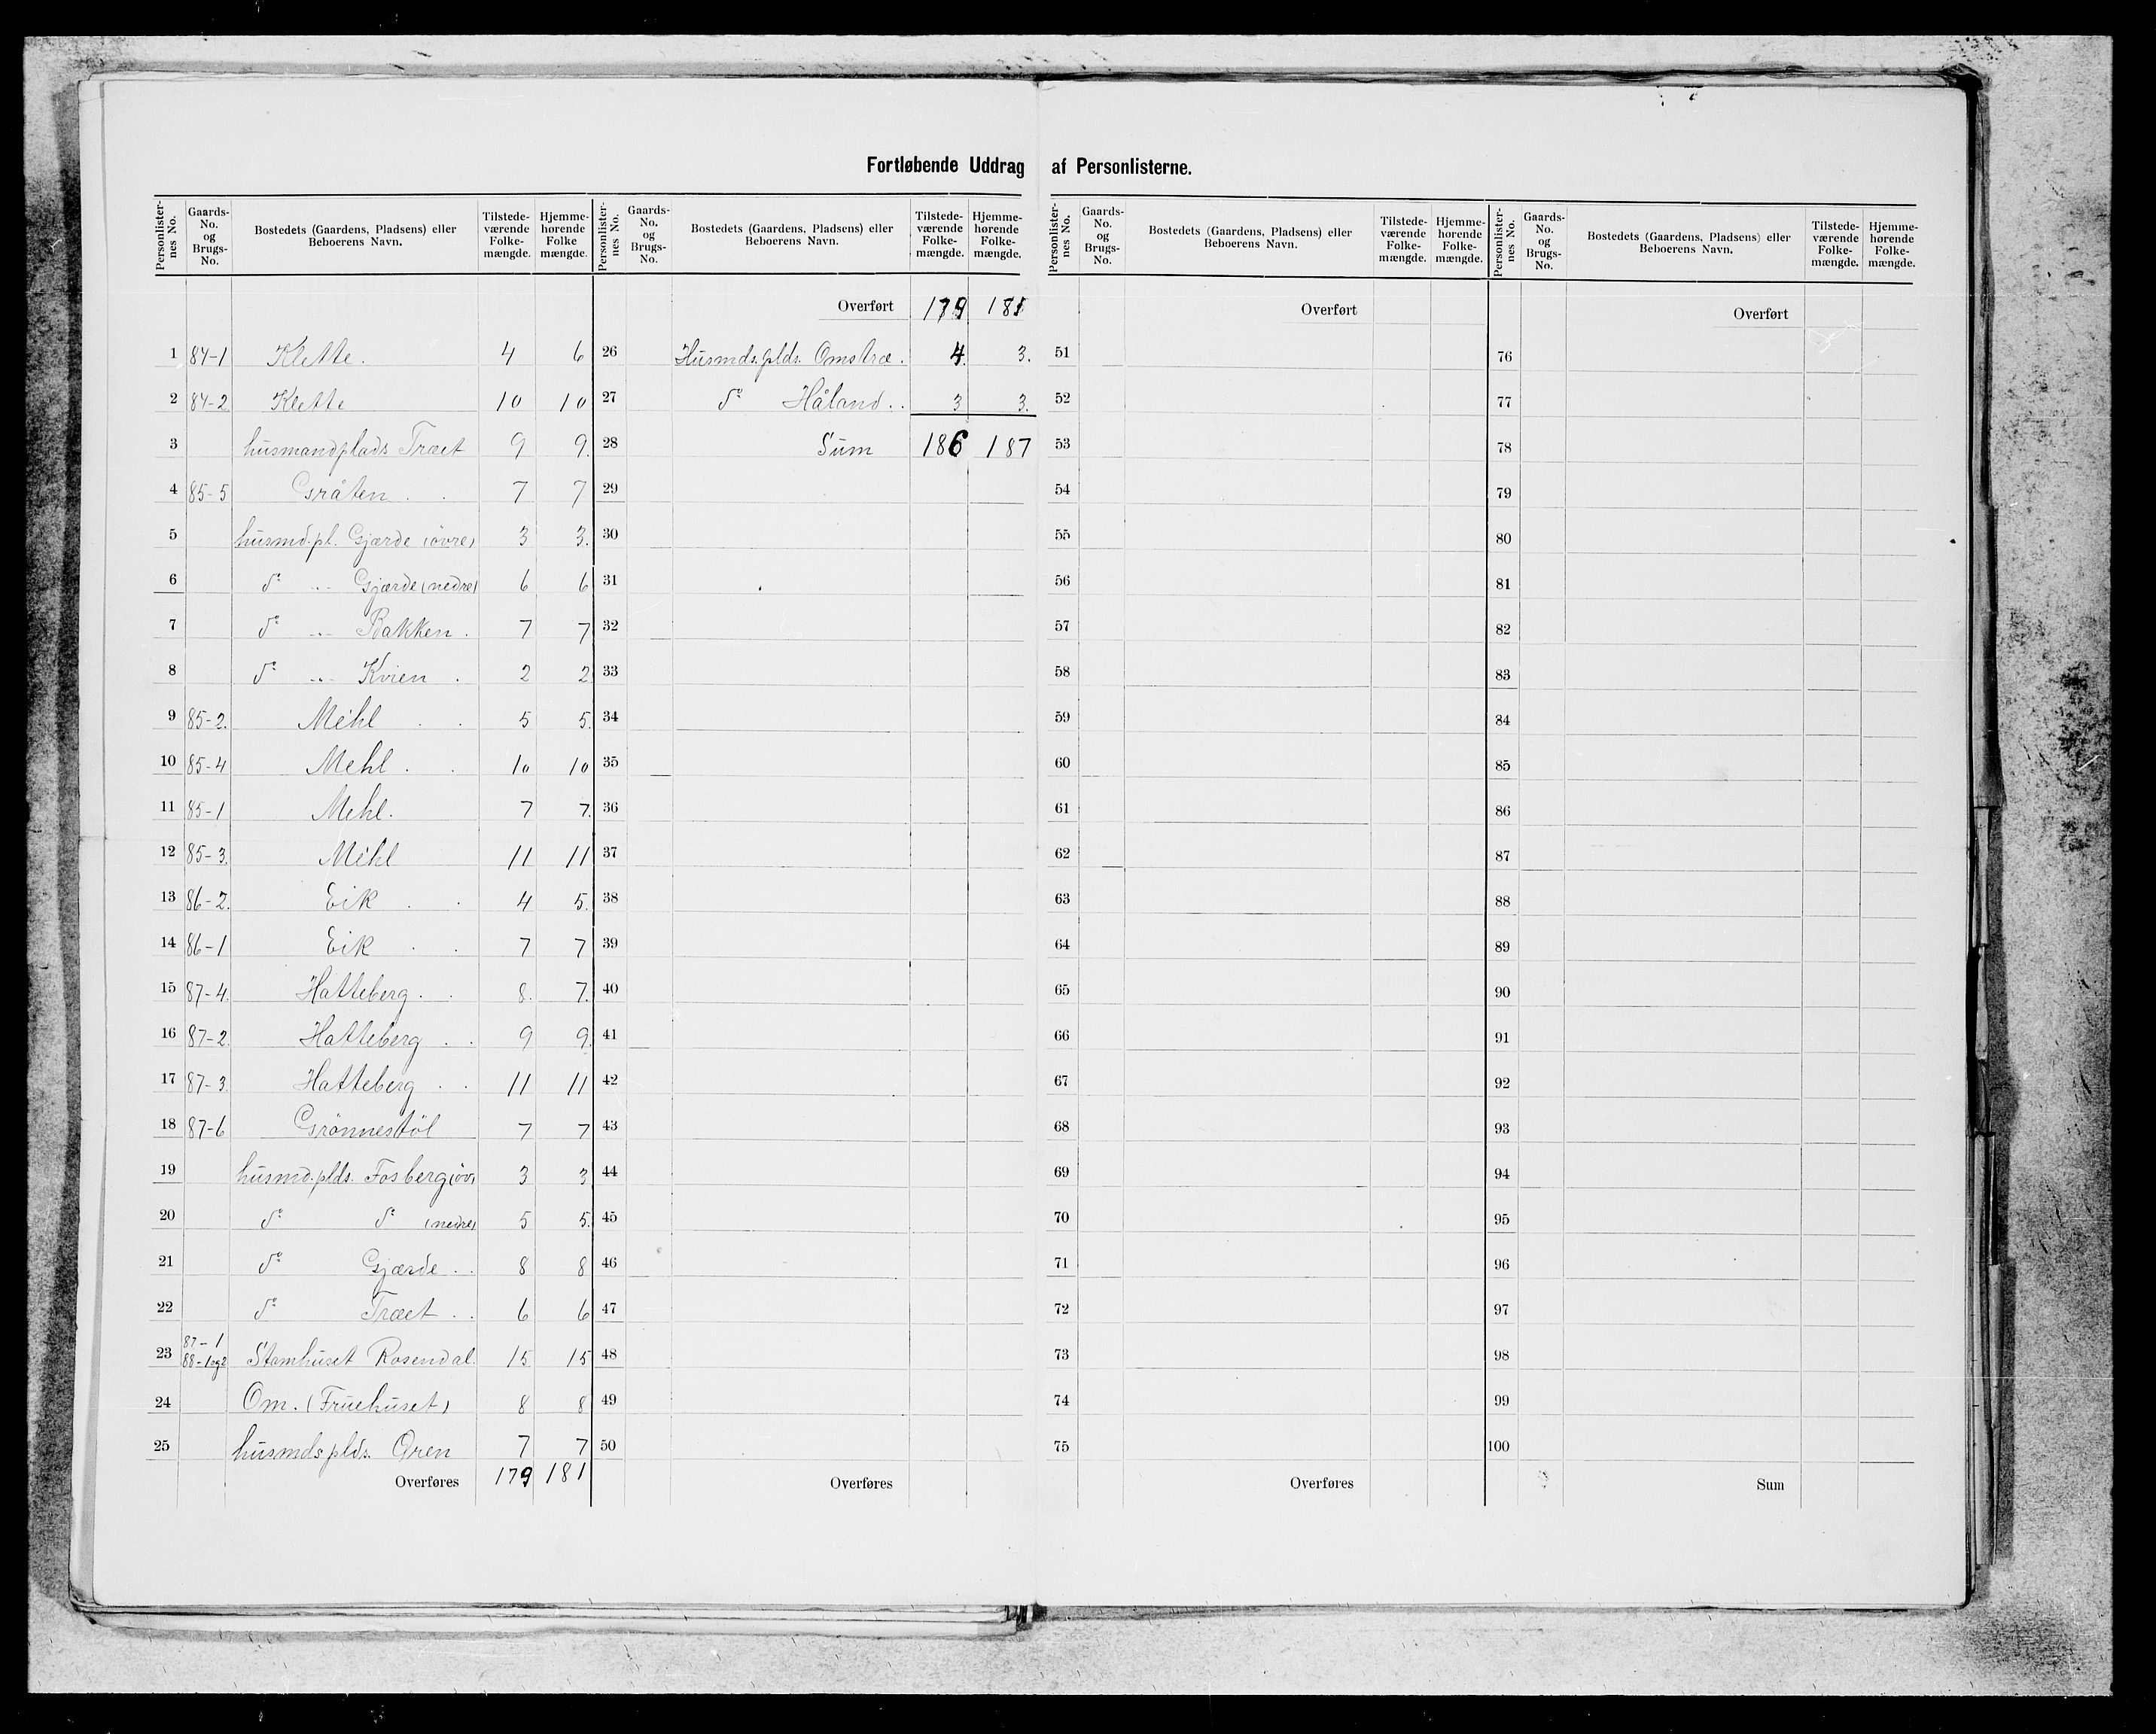 Fortløbende Uddrag af Personlisterne.
Personlisternes No. Gaards-No. og Brugs-No. Bostedets (Gaardens, Pladsens) eller Beboerens Navn. Tilstedeværende Folkemængde. Hjemmehørende Folkemængde.
1 84-1 Klette. 4 6
2 84-2 Klette 10 10
3 husmandplads Træet 9 9.
4 85-5 Gråten . . 7 7
5 husmd.pl. Gjærde (øvre) 3 3.
6 do ..- Gjærde (nedre) 6 6
7 do ..- Bakken . 7 7
8 do ..- Kvien . 2 2
9 85-2. Mehl . . 5 5.
10 85-4 Mehl . . 10 10
11 85-1 Mehl. 7 7.
12 85-3. Mehl 11 11
13 86-2. Eik . . 4 5.
14 86-1 Eik . . 7 7
15 87-4. Hatteberg . . 8. 7.
16 87-2. Hatteberg . . 9 9.
17 87-3. Hatteberg . . 11 11
18 87-6 Grønnestøl 7 7
19 husmd.plds. Fosberg (øv) 3 3
20 do do (nedre) 5 5.
21 do Gjærde . . 8 8
22 do Træet . . 6 6
23 87-1 88-1og2 Stamhuset Rosendal. 15 15
24 Om. (Fruehuset) 8 8
25 husmdsplds. Øren 7 7
Overføres 179 181
Personlisternes No. Gaards-No. og Brugs-No. Bostedets (Gaardens, Pladsens) eller Beboerens Navn. Tilstedeværende Folkemængde. Hjemmehørende Folkemængde.
Overført 179 181
26 Husmds.plds. Omstræ . 4. 3.
27 do Håland . . 3 3.
28 Sum 186 187
29
30
31
32
33
34
35
36
37
38
39
40
41
42
43
44
45
46
47
48
49
50
Overføres
Personlisternes No. Gaards-No. og Brugs-No. Bostedets (Gaardens, Pladsens) eller Beboerens Navn. Tilstedeværende Folkemængde. Hjemmehørende Folkemængde.
Overført
51
52
53
54
55
56
57
58
59
60
61
62
63
64
65
66
67
68
69
70
71
72
73
74
75
Overføres
Personlisternes No. Gaards-No. og Brugs-No. Bostedets (Gaardens, Pladsens) eller Beboerens Navn. Tilstedeværende Folkemængde. Hjemmehørende Folkemængde.
Overført
76
77
78
79
80
81
82
83
84
85
86
87
88
89
90
91
92
93
94
95
96
97
98
99
100
Sum